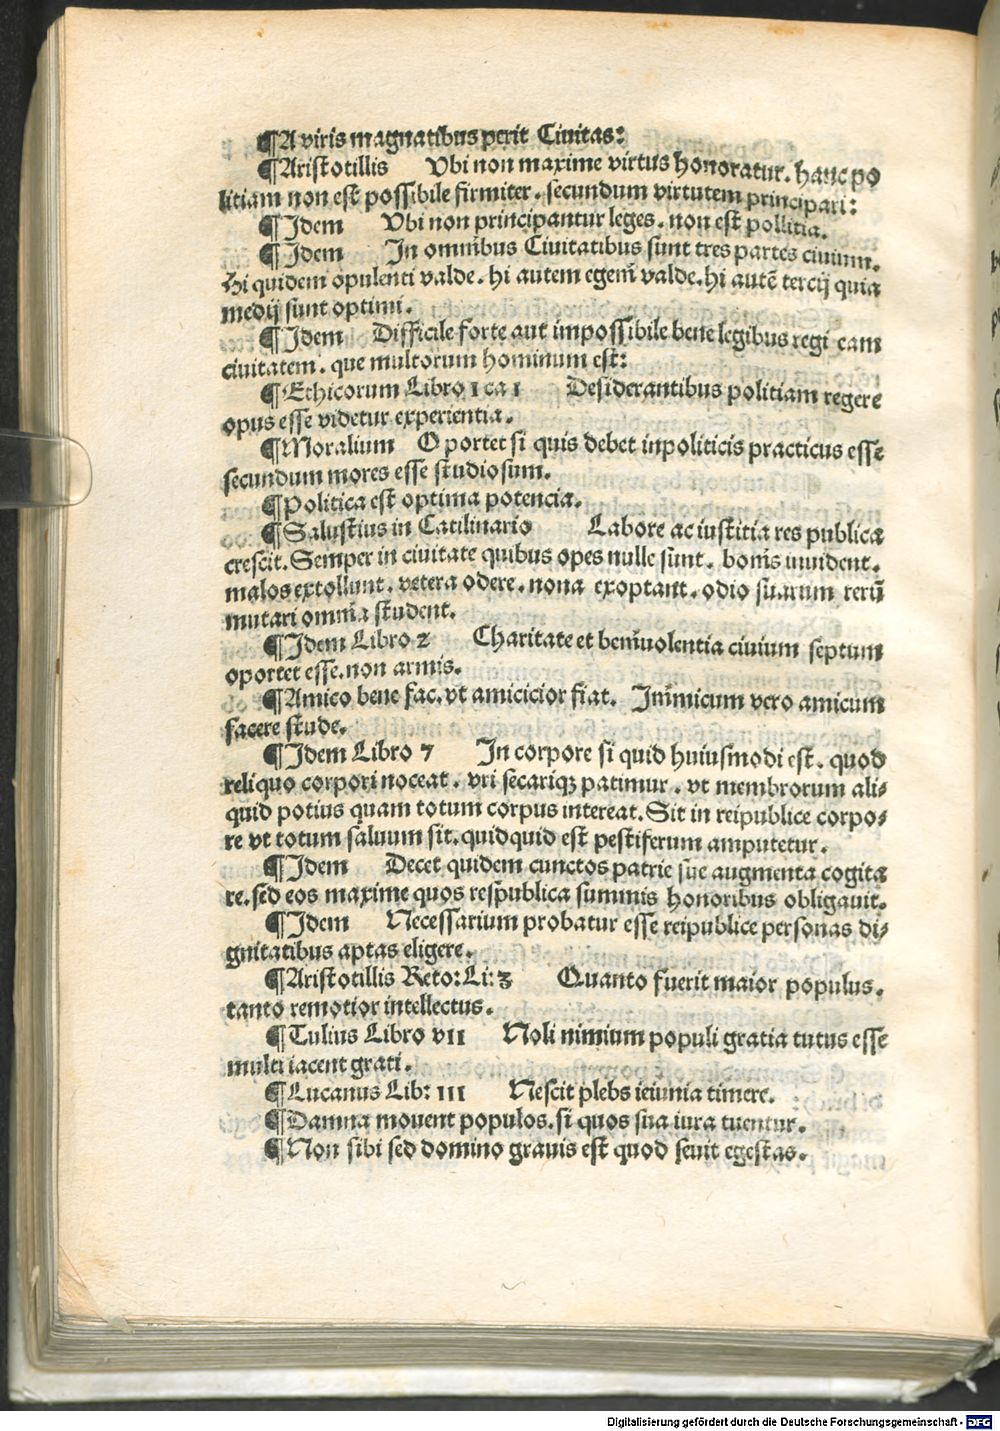 ¶A viris magnatibus perit Ciuitas:
¶Aristotillis Vbi non maxime virtus honoratur. hanc po
litiam non est possibile firmiter. secundum virtutem principari:
¶Idem Vbi non principantur leges. non est pollitia.
¶Idem In omnibus Ciuitatibus sunt tres partes ciuium.
Hi quidem opulenti valde. hi autem egeni valde. hi autē tercij quia
medij sunt optimi.
¶Idem Difficile forte aut impossibile bene legibus regi eam
ciuitatem. que multorum hominum est:
¶Ethicorum Libro 1 ca 1 Desiderantibus politiam regere
opus esse videtur experientia.
¶Moralium O portet si quis debet inpoliticis practicus esse
secundum mores esse studiosum.
¶Politica est optima potencia.
¶Salustius in Catilinario Labore ac iustitia res publica
crescit. Semper in ciuitate quibus opes nulle sunt. bonis inuident.
malos extollunt. vetera odere. noua exoptant. odio suarum rerū
mutari omnia student.
¶Idem Libro 2 Charitate et beniuolentia ciuium septum
oportet esse. non armis.
¶Amico bene fac. vt amicicior fiat. Inimicum vero amicum
facere stude.
¶Idem Libro 7 In corpore si quid huiusmodi est. quod
reliquo corpori noceat. vri secariqꝫ patimur. vt membrorum ali⸗
quid potius quam totum corpus intereat. Sit in reipublice corpo⸗
re vt totum saluum sit. quidquid est pestiferum amputetur.
¶Idem Decet quidem cunctos patrie sue augmenta cogita
re. sed eos maxime quos respublica summis honoribus obligauit.
¶Idem Necessarium probatur esse reipublice personas di⸗
gnitatibus aptas eligere.
¶Aristotillis Reto: Li: 3 Quanto fuerit maior populus.
tanto remotior intellectus.
¶Tulius Libro VII Noli nimium populi gratia tutus esse
multi iacent grati.
¶Lucanus Lib: III Nescit plebs ieiunia timere.
¶Damna mouent populos. si quos sua iura tuentur.
¶Non sibi sed domino grauis est quod seuit egestas.
Digitalisierung gefördert durch die Deutsche Forschungsgemeinschaft - DFG